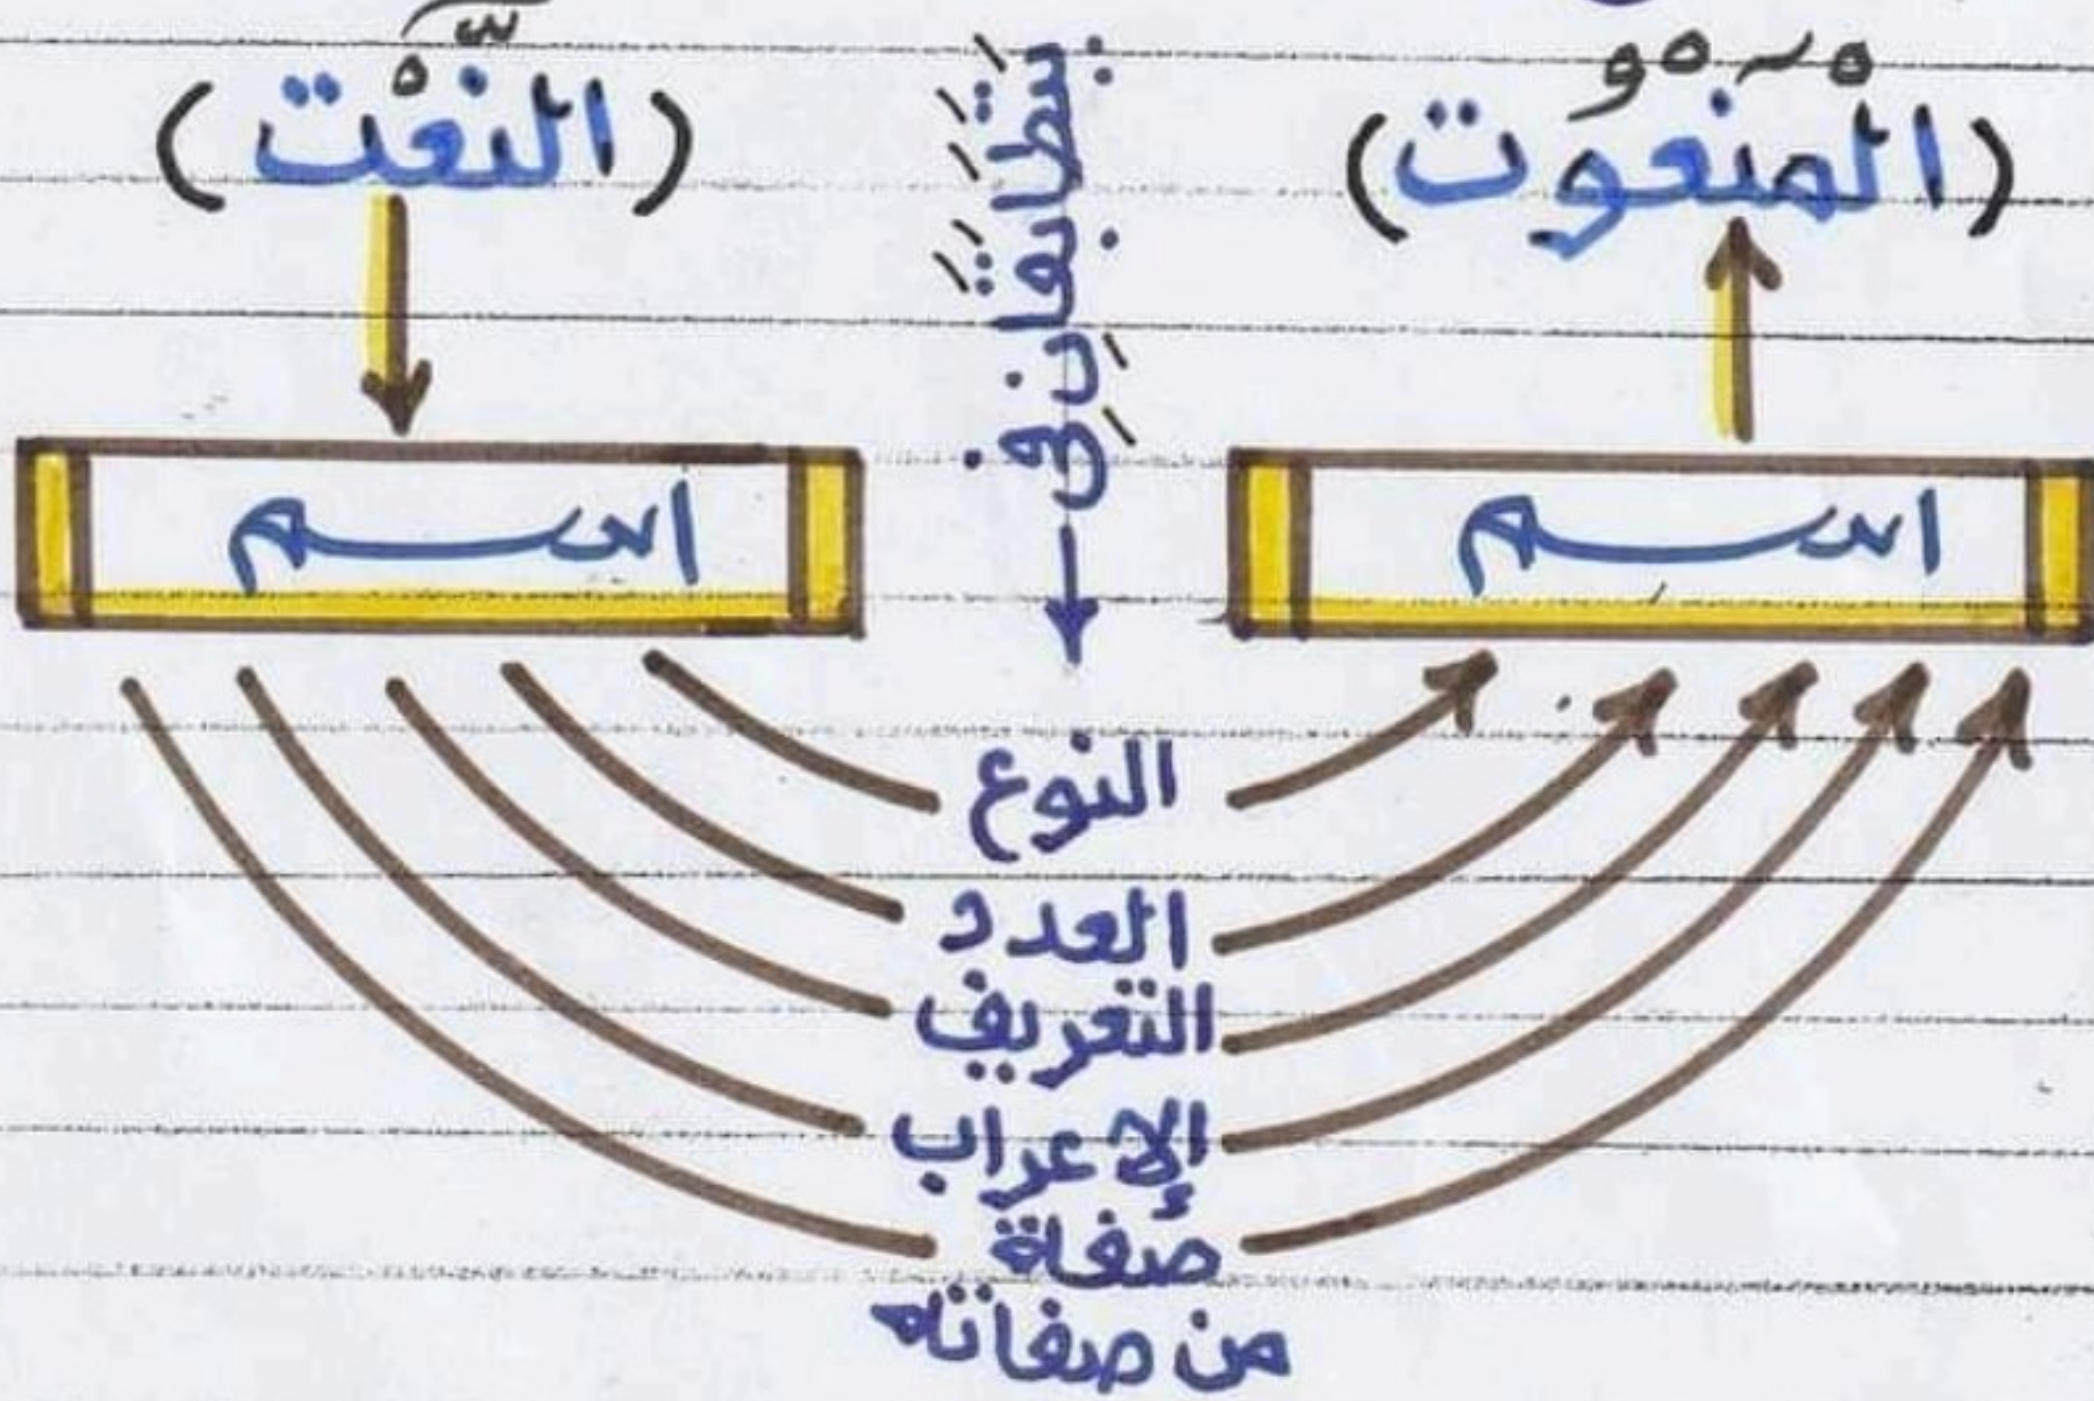 (المنعوت)
يَتَطَابَقَانِ فِي
(النَّعْت)
اسم
اسم
النوع
العدد
التعريف
الإعراب
صفة
من صفاته